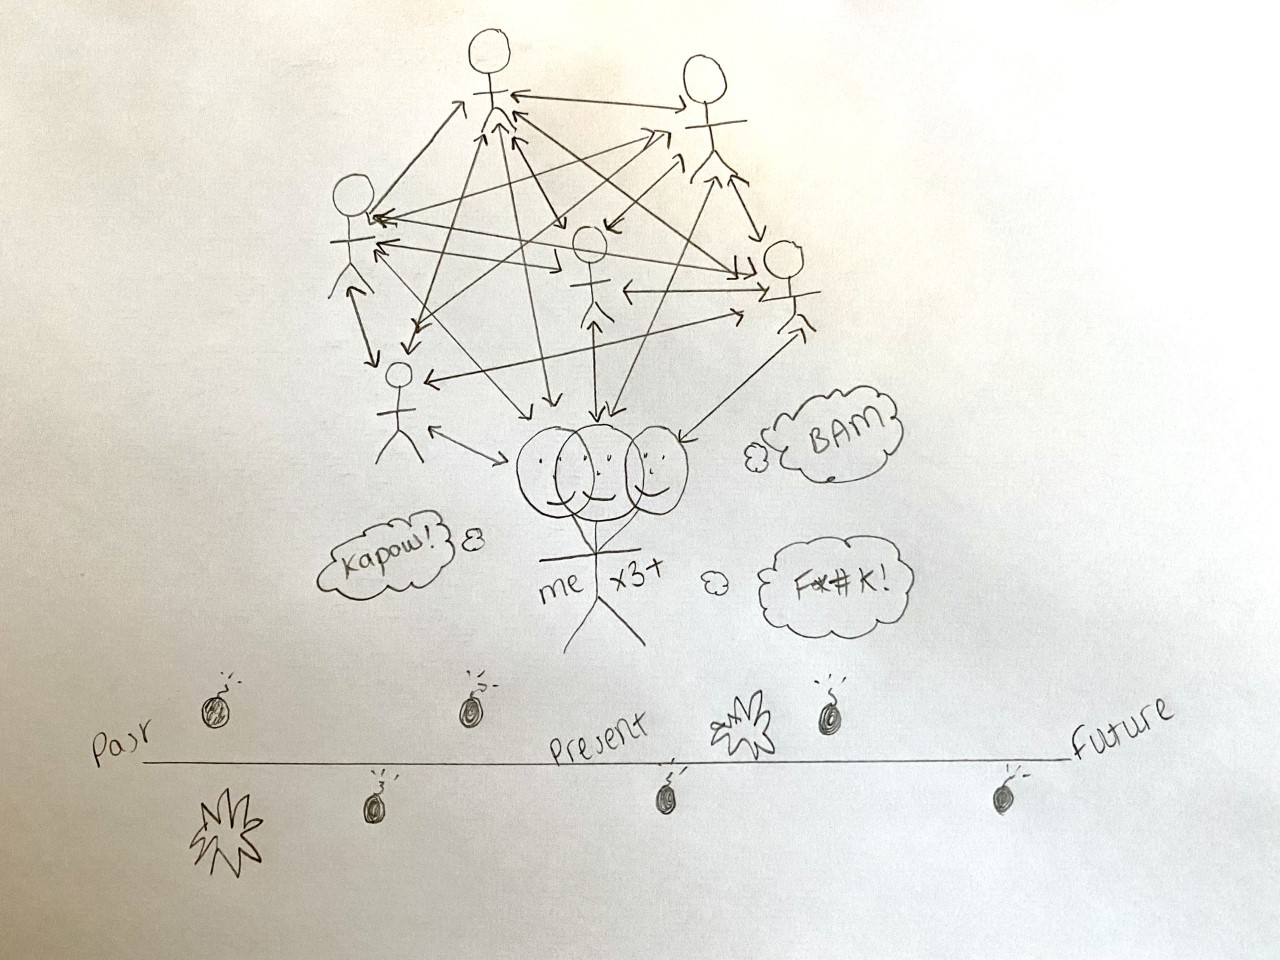 BAM
Kapow!
F*#K!
me x3+
Past Present Future